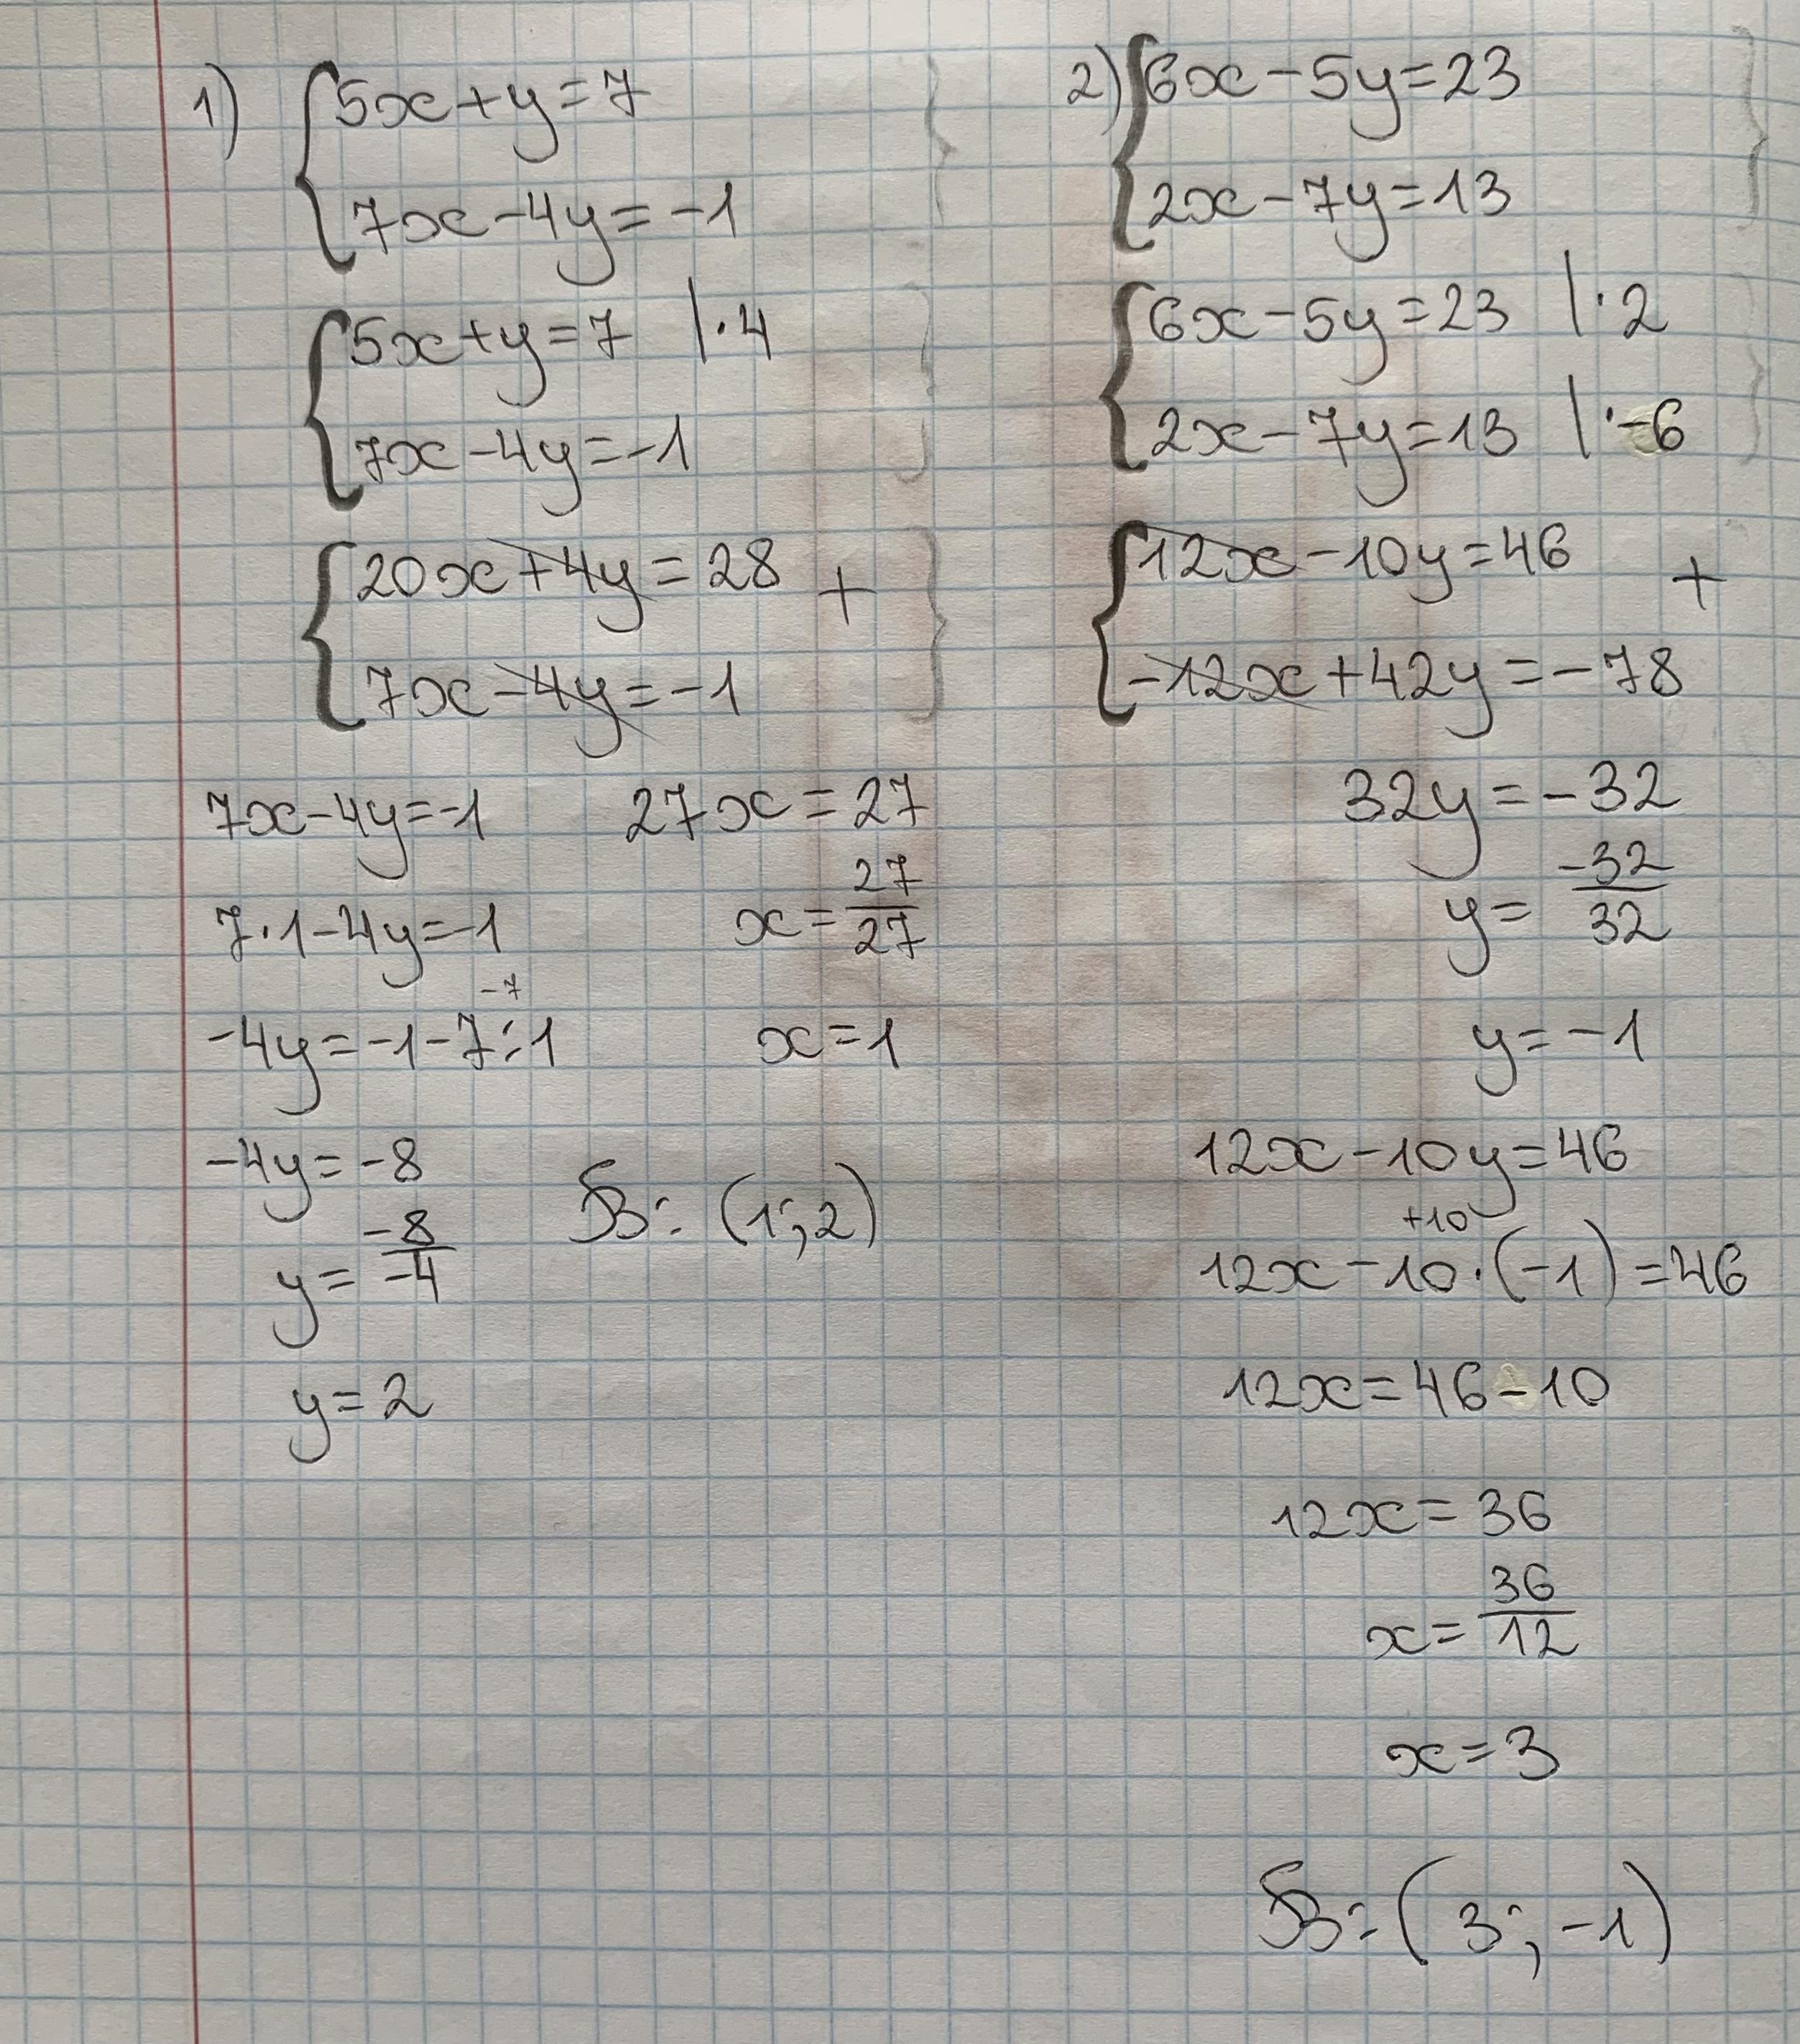 1) { 5x+y=7
7x-4y=-1
{ 5x+y=7 |·4
7x-4y=-1
{ 20x+4y=28 +
7x-4y=-1
7x-4y=-1
7·1-4y=-1
-7
-4y=-1-7:1
-4y=-8
y= -8/-4
y=2
27x=27
x= 27/27
x=1
В: (1;2)
2) { 6x-5y=23
2x-7y=13
{ 6x-5y=23 |·2
2x-7y=13 |·-6
{ 12x-10y=46 +
-12x+42y=-78
32y=-32
y= -32/32
y=-1
12x-10y=46
+10
12x-10·(-1)=46
12x=46-10
12x=36
x= 36/12
x=3
В: (3;-1)